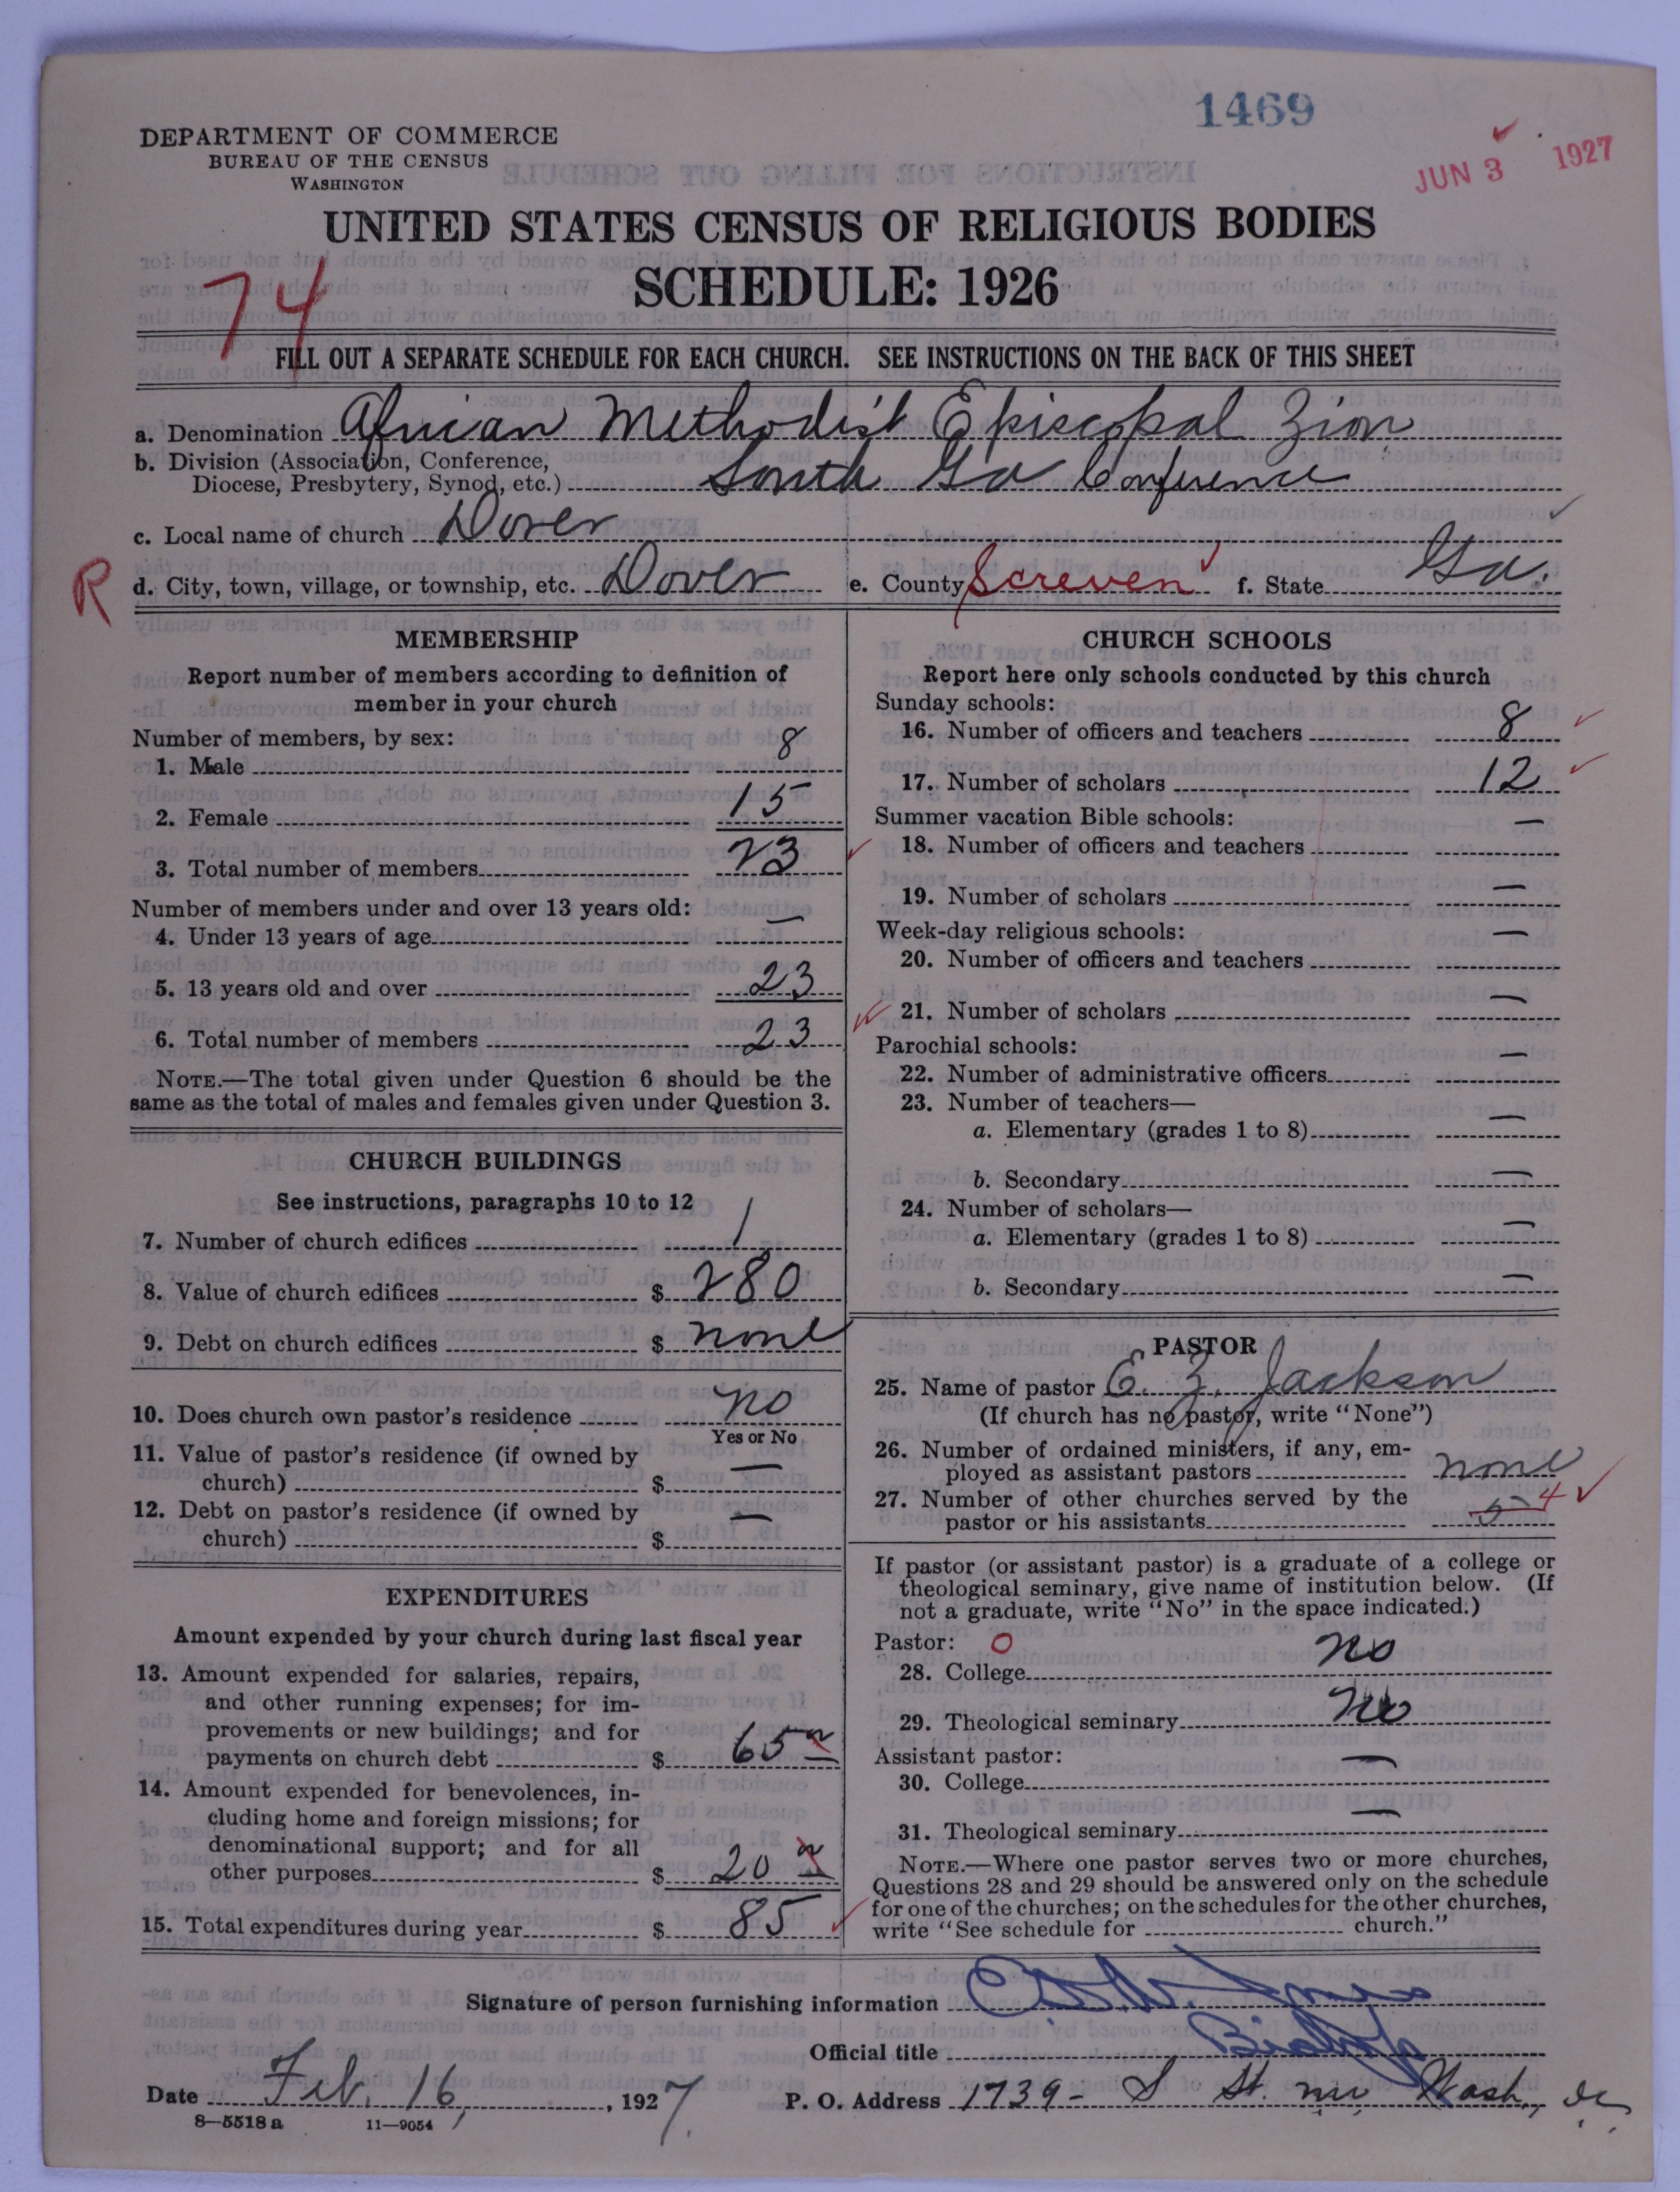 1469
JUN 3 1927
DEPARTMENT OF COMMERCE
BUREAU OF THE CENSUS
WASHINGTON
UNITED STATES CENSUS OF RELIGIOUS BODIES
SCHEDULE: 1926
74
FILL OUT A SEPARATE SCHEDULE FOR EACH CHURCH. SEE INSTRUCTIONS ON THE BACK OF THIS SHEET
a. Denomination African Methodist Episcopal Zion
b. Division (Association, Conference,
Diocese, Presbytery, Synod, etc.) South Ga Conference
c. Local name of church Dover
R d. City, town, village, or township, etc. Dover e. County Screven f. State Ga.
MEMBERSHIP
Report number of members according to definition of
member in your church
Number of members, by sex:
1. Male 8
2. Female 15
3. Total number of members 23
Number of members under and over 13 years old:
4. Under 13 years of age —
5. 13 years old and over 23
6. Total number of members 23
NOTE.—The total given under Question 6 should be the
same as the total of males and females given under Question 3.
CHURCH BUILDINGS
See instructions, paragraphs 10 to 12
7. Number of church edifices 1
8. Value of church edifices $ 280
9. Debt on church edifices $ none
10. Does church own pastor's residence no
Yes or No
11. Value of pastor's residence (if owned by
church) $ —
12. Debt on pastor's residence (if owned by
church) $ —
EXPENDITURES
Amount expended by your church during last fiscal year
13. Amount expended for salaries, repairs,
and other running expenses; for im-
provements or new buildings; and for
payments on church debt $ 65
14. Amount expended for benevolences, in-
cluding home and foreign missions; for
denominational support; and for all
other purposes $ 20
15. Total expenditures during year $ 85
CHURCH SCHOOLS
Report here only schools conducted by this church
Sunday schools:
16. Number of officers and teachers 8
17. Number of scholars 12
Summer vacation Bible schools:
18. Number of officers and teachers —
19. Number of scholars —
Week-day religious schools:
20. Number of officers and teachers —
21. Number of scholars —
Parochial schools:
22. Number of administrative officers —
23. Number of teachers—
a. Elementary (grades 1 to 8) —
b. Secondary —
24. Number of scholars—
a. Elementary (grades 1 to 8) —
b. Secondary —
PASTOR
25. Name of pastor E. Z. Jackson
(If church has no pastor, write "None")
26. Number of ordained ministers, if any, em-
ployed as assistant pastors none
27. Number of other churches served by the
pastor or his assistants 5 4
If pastor (or assistant pastor) is a graduate of a college or
theological seminary, give name of institution below. (If
not a graduate, write "No" in the space indicated.)
Pastor: O
28. College no
29. Theological seminary no
Assistant pastor:
30. College —
31. Theological seminary —
NOTE.—Where one pastor serves two or more churches,
Questions 28 and 29 should be answered only on the schedule
for one of the churches; on the schedules for the other churches,
write "See schedule for church."
Signature of person furnishing information
Official title Bishop
Date Feb. 16, 1927. P. O. Address 1739- S St. nw, Wash., DC
8—5518a 11—9054